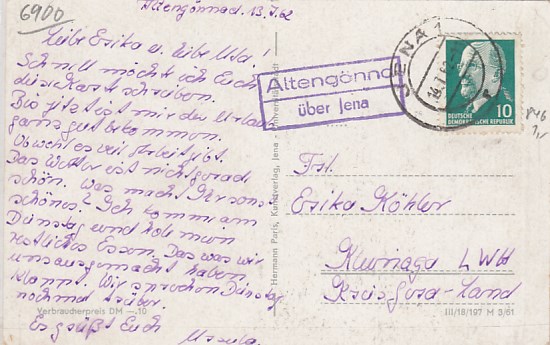 6900
Altengönna d. 13.7.62
Liebe Erika u. liebe Uta!
Schnell möcht ich Euch
diese Karte schreiben.
Bis jetzt ist mir der Urlaub
ganz gut bekommen.
Obwohl es viel Arbeit gibt.
Das Wetter ist nicht gerade
schön. Was macht Ihr sons
schönes? Ich komme am
Dienstag und hole mein
restliches Essen. Das was wir
uns ausgemacht haben
klappt. Wir sprechen Dienstag
nochmal drüber.
Es grüßt Euch
Ursula.
Verbraucherpreis DM —.10
Hermann Paris, Kunstverlag, Jena
Altengönna
über Jena
JENA 1
DEUTSCHE
DEMOKRATISCHE REPUBLIK
10
Frl.
Erika Köhler
LWH
Kreis Gera-Land
III/18/197 M 3/61